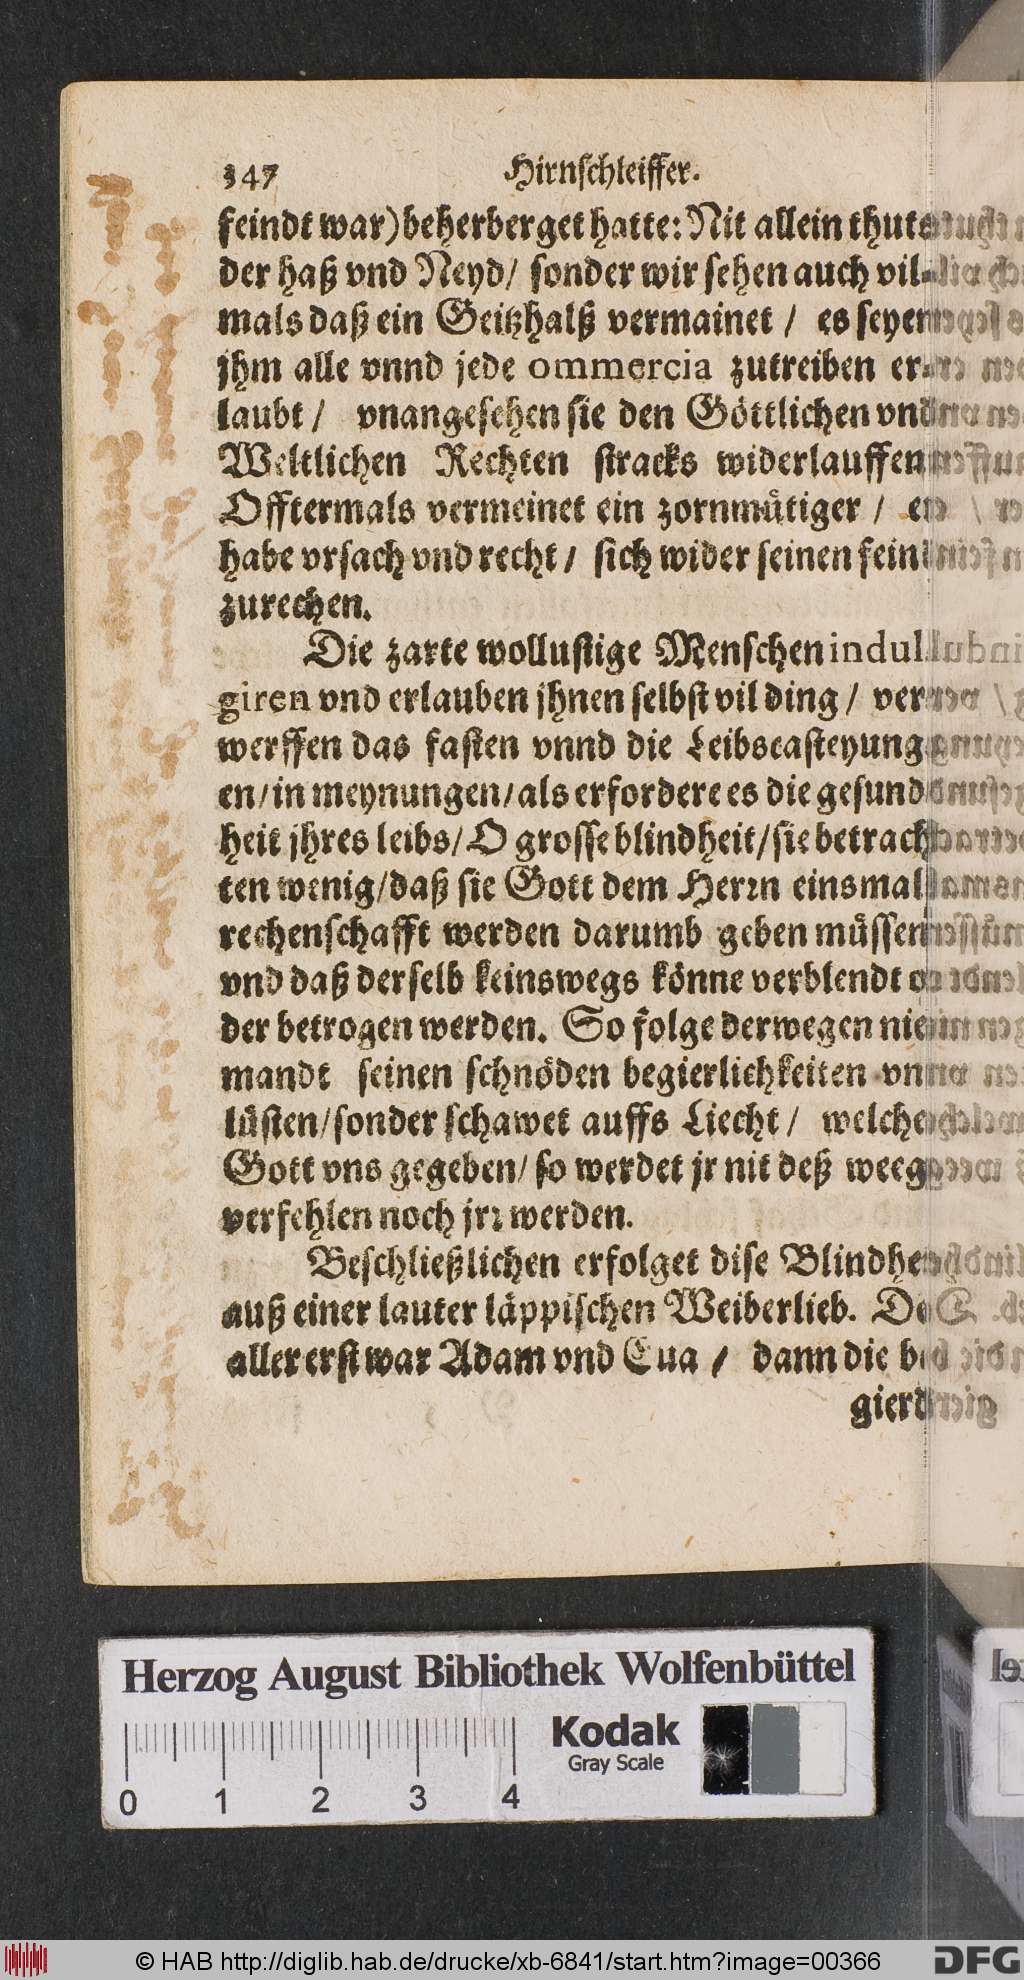 347 Hirnschleiffer.
feindt war) beherberget hatte: Nit allein thuts
der haß vnd Neyd / sonder wir sehen auch vil-
mals daß ein Geitzhalß vermainet / es seyen
jhm alle vnnd jede ommercia zutreiben er-
laubt / vnangesehen sie den Göttlichen vnd
Weltlichen Rechten stracks widerlauffen
Offtermals vermeinet ein zornmütiger / er
habe vrsach vnd recht / sich wider seinen feind
zurechen.
Die zarte wollustige Menschen indul-
giren vnd erlauben jhnen selbst vil ding / ver-
werffen das fasten vnnd die Leibscasteyung
en / in meynungen / als erfordere es die gesund
heit jhres leibs / O grosse blindheit / sie betrach
ten wenig / daß sie Gott dem Herrn einsmals
rechenschafft werden darumb geben müssen
vnd daß derselb keinswegs könne verblendt o
der betrogen werden. So folge derwegen nie
mandt seinen schnöden begierlichkeiten vnn
lüsten / sonder schawet auffs Liecht / welche
Gott vns gegeben / so werdet jr nit deß weeg
verfehlen noch jrr werden.
Beschließlichen erfolget dise Blindhe
auß einer lauter läppischen Weiberlieb. D
aller erst war Adam vnd Eua / dann die be
gierd
Herzog August Bibliothek Wolfenbüttel
Kodak
Gray Scale
0 1 2 3 4
© HAB http://diglib.hab.de/drucke/xb-6841/start.htm?image=00366
DFG